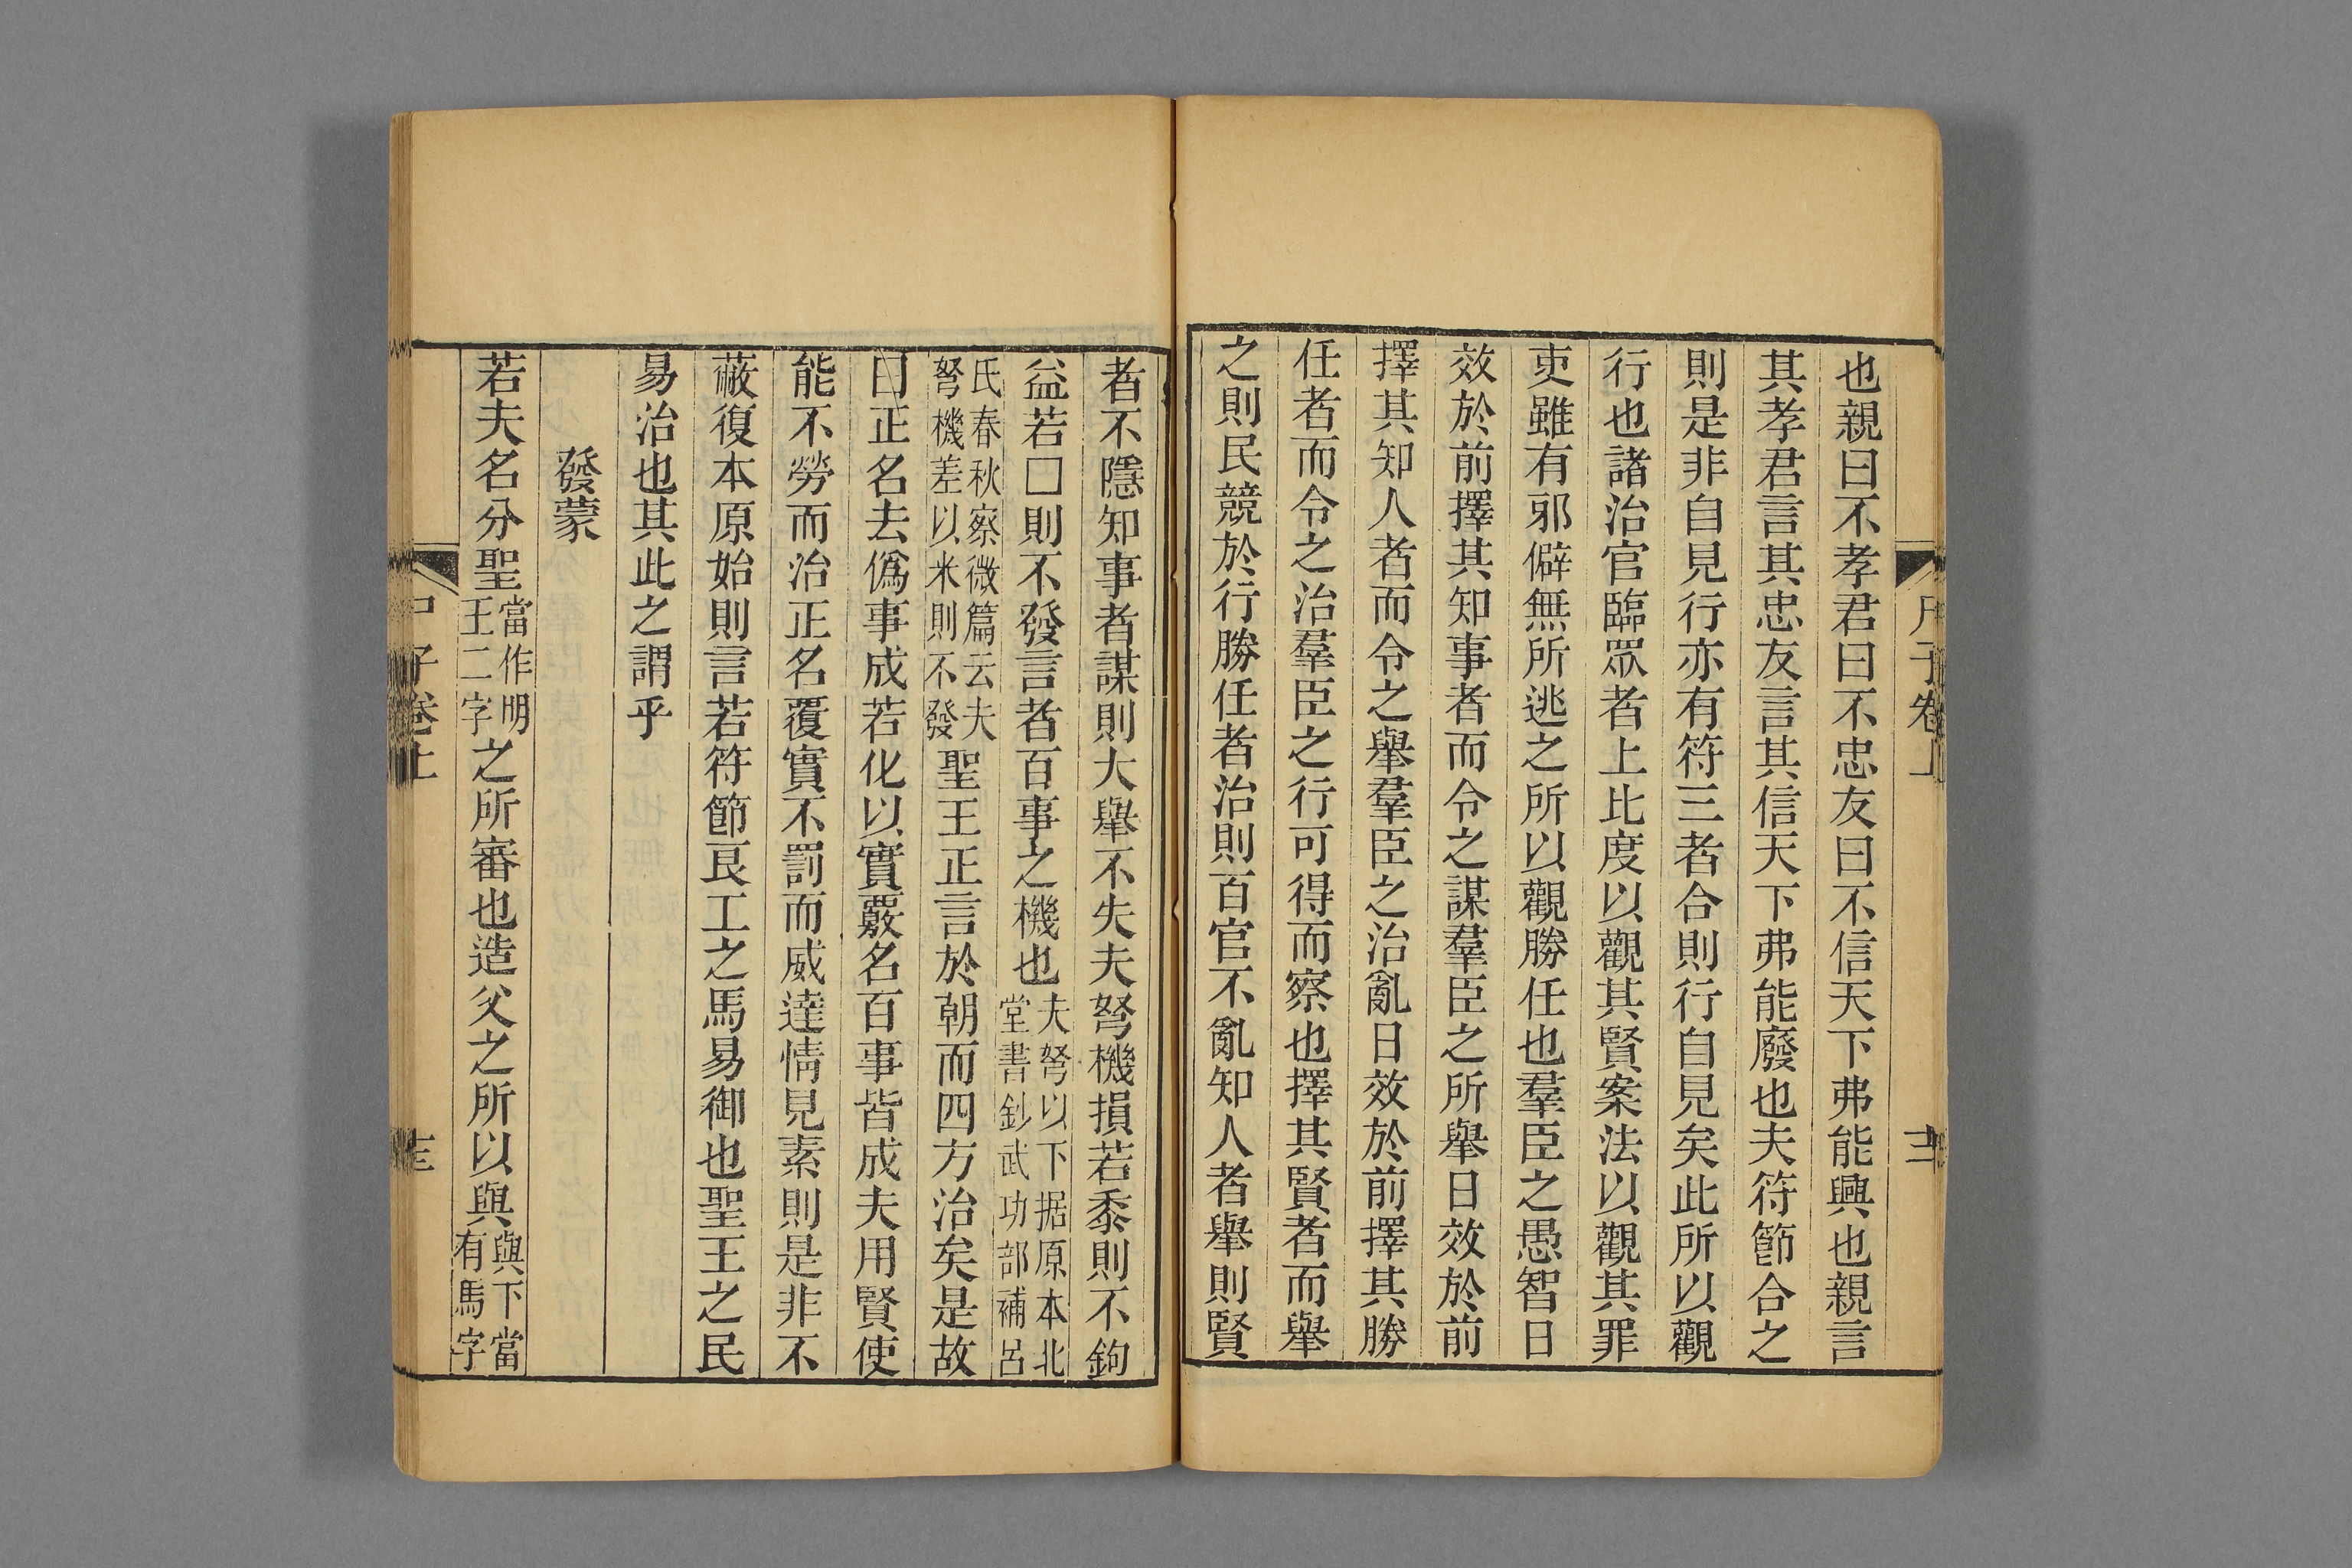 也親曰不孝君曰不忠友曰不信天下弗能興也親言
其孝君言其忠友言其信天下弗能廢也夫符節合之
則是非自見行亦有符三者合則行自見矣此所以觀
行也諸治官臨眾者上比度以觀其賢案法以觀其罪
吏雖有邪僻無所逃之所以觀勝任也羣臣之愚智日
效於前擇其知事者而令之謀羣臣之所舉日效於前
擇其知人者而令之舉羣臣之治亂日效於前擇其勝
任者而令之治羣臣之行可得而察也擇其賢者而舉
之則民競於行勝任者治則百官不亂知人者舉則賢
者不隱知事者謀則大舉不失夫弩機損若黍則不鉤
益若□則不發言者百事之機也夫弩以下据原本北堂書鈔武功部補呂
氏春秋察微篇云夫弩機差以米則不發聖王正言於朝而四方治矣是故
曰正名去僞事成若化以實覈名百事皆成夫用賢使
能不勞而治正名覆實不罰而威達情見素則是非不
蔽復本原始則言若符節良工之馬易御也聖王之民
易治也其此之謂乎
發蒙
若夫名分聖當作明王二字之所審也造父之所以與與下當有馬字
子卷上